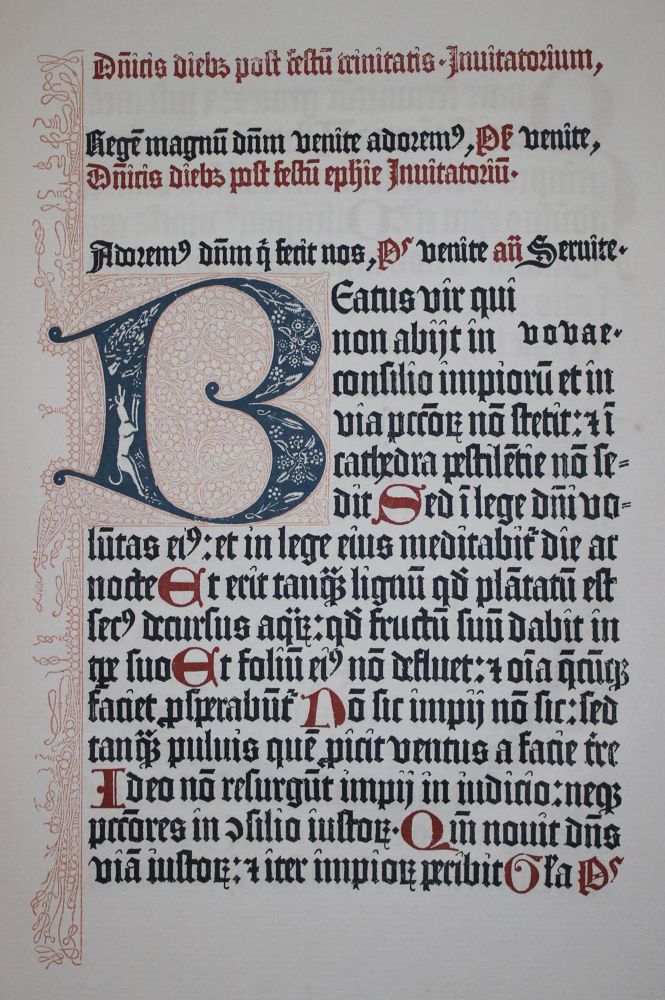 Dn̄icis diebꝫ post festū trinitatis. Inuitatorium,
Regē magnū dn̄m venite adoremꝰ, Pṡ venite,
Dn̄icis diebꝫ post festū ephīe Inuitatoriū.
Adoremꝰ dn̄m q̄ fecit nos, Pˢ venite an̄ Seruite.
BEatus vir qui
non abijt in vovae.
consilio impiorū et in
via pccōꝝ nō stetit: ⁊ ī
cathedra pestilētie nō se=
dit Sed ī lege dn̄i vo=
lūtas eiꝰ: et in lege eius meditabit᷑ die ac
nocte Et erit tanqꝫ̄ lignū qd̄ plātatū est
secꝰ decursus aqꝝ̄: qd̄ fructū suū dabit in
tꝑe suo Et foliū eiꝰ nō defluet: ⁊ oīa q̄cūqꝫ
faciet ꝓsperabūt᷑ Nō sic impij nō sic: sed
tanqꝫ̄ puluis quē ꝓicit ventus a facie t̄re
Ideo nō resurgūt impij in iudicio: neqꝫ
pccōres in ꝯsilio iustoꝝ. Qm̄ nouit dn̄s
viā iustoꝝ: ⁊ iter impioꝝ peribit Gl̄a Pˢ